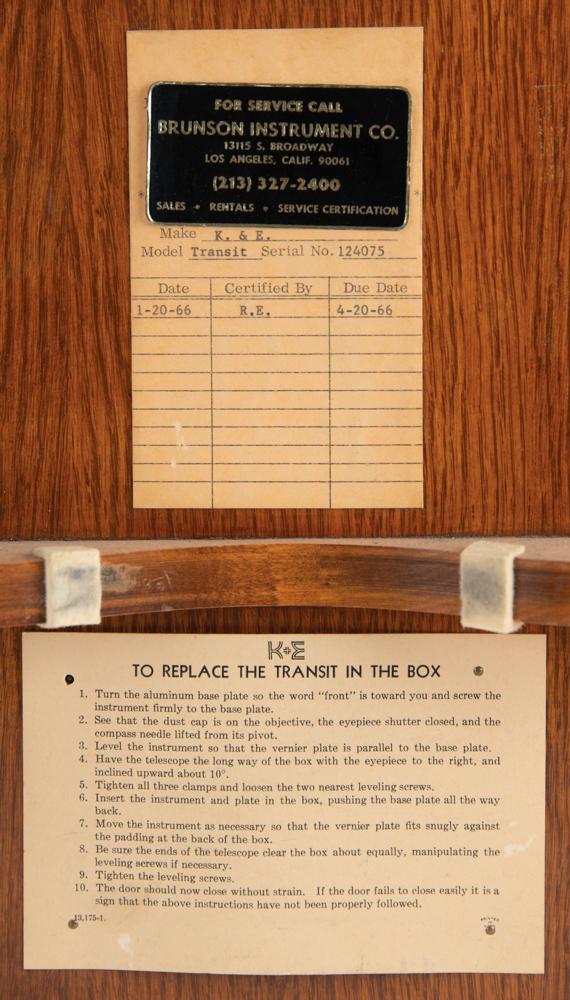 FOR SERVICE CALL
BRUNSON INSTRUMENT CO.
13115 S. BROADWAY
LOS ANGELES, CALIF. 90061
(213) 327-2400
SALES • RENTALS • SERVICE CERTIFICATION
Make K. & E.
Model Transit Serial No. 124075
Date Certified By Due Date
1-20-66 R.E. 4-20-66
K+E
TO REPLACE THE TRANSIT IN THE BOX
1. Turn the aluminum base plate so the word "front" is toward you and screw the
instrument firmly to the base plate.
2. See that the dust cap is on the objective, the eyepiece shutter closed, and the
compass needle lifted from its pivot.
3. Level the instrument so that the vernier plate is parallel to the base plate.
4. Have the telescope the long way of the box with the eyepiece to the right, and
inclined upward about 10°.
5. Tighten all three clamps and loosen the two nearest leveling screws.
6. Insert the instrument and plate in the box, pushing the base plate all the way
back.
7. Move the instrument as necessary so that the vernier plate fits snugly against
the padding at the back of the box.
8. Be sure the ends of the telescope clear the box about equally, manipulating the
leveling screws if necessary.
9. Tighten the leveling screws.
10. The door should now close without strain. If the door fails to close easily it is a
sign that the above instructions have not been properly followed.
13,175-1.